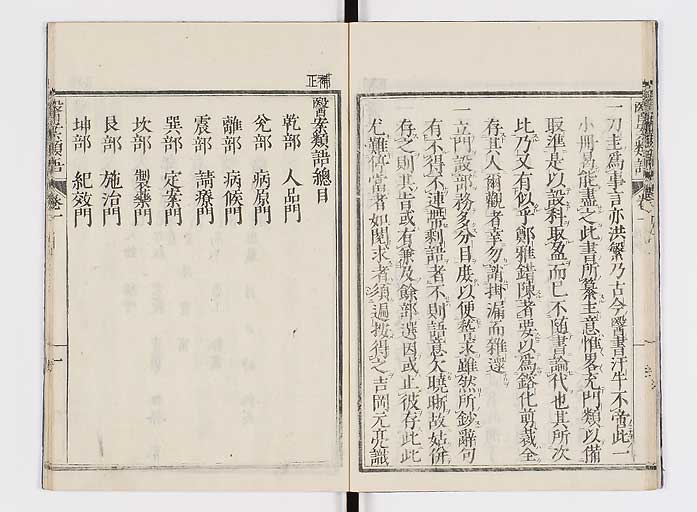 一刀圭為事言亦洪繁乃古今醫書汗牛不啻此一
小冊易能盡之此書所纂主意惟畧充門類以備
取準是以設科取盈而已不随書論代也其所次
此乃又有似乎鄭雅錯陳者要以為鎔化前裁全
存其人爾觀者幸勿謂掛漏而雜還
一立門設部務多分目庋以便蒐求雖然所鈔辭句
有不得不連帶剩語者不則語意欠曉晰故姑併
存之則其旨或有兼及餘部選因或止彼存此此
尤難停當者如閱求者須遍拔得之吉岡元亮識
醫案類語 卷一
補正
醫案類語總目
乾部 人品門
兌部 病原門
離部 病候門
震部 請療門
巽部 定案門
坎部 製藥門
艮部 施治門
坤部 紀效門
醫案類語 卷一 目 一